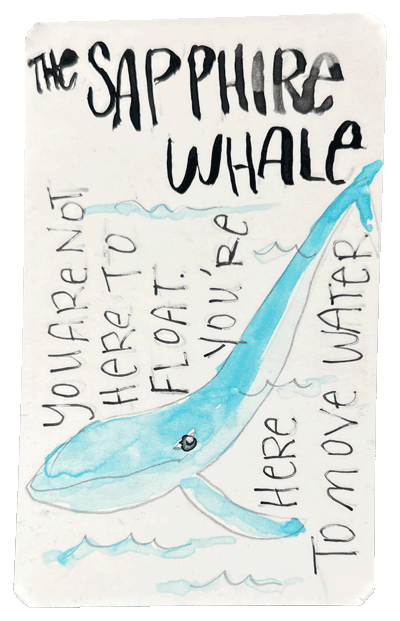 THE SAPPHIRE
WHALE
YOU ARE NOT
HERE TO
FLOAT.
YOU'RE
HERE
TO MOVE WATER.